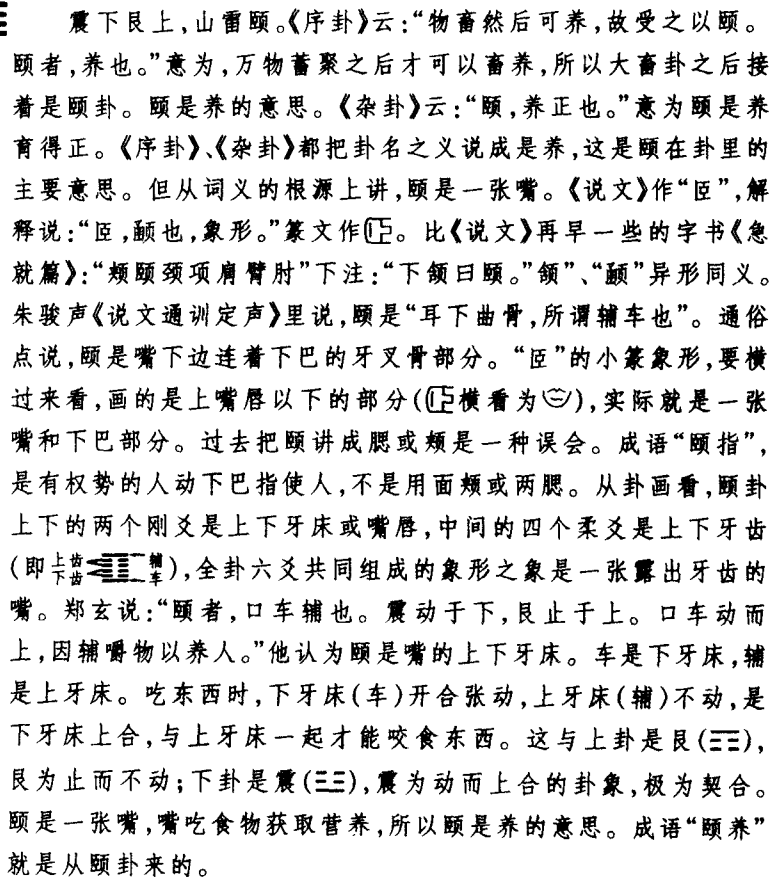 震下艮上，山雷颐。《序卦》云：“物畜然后可养，故受之以颐。
颐者，养也。”意为，万物蓄聚之后才可以畜养，所以大畜卦之后接
着是颐卦。颐是养的意思。《杂卦》云：“颐，养正也。”意为颐是养
育得正。《序卦》、《杂卦》都把卦名之义说成是养，这是颐在卦里的
主要意思。但从词义的根源上讲，颐是一张嘴。《说文》作“𦣞”，解
释说：“𦣞，顄也，象形。”篆文作。比《说文》再早一些的字书《急
就篇》：“颊颐颈项肩臂肘”下注：“下颔曰颐。”颔”、“顄”异形同义。
朱骏声《说文通训定声》里说，颐是“耳下曲骨，所谓辅车也”。通俗
点说，颐是嘴下边连着下巴的牙叉骨部分。“𦣞”的小篆象形，要横
过来看，画的是上嘴唇以下的部分(横看为)，实际就是一张
嘴和下巴部分。过去把颐讲成腮或颊是一种误会。成语“颐指”，
是有权势的人动下巴指使人，不是用面颊或两腮。从卦画看，颐卦
上下的两个刚爻是上下牙床或嘴唇，中间的四个柔爻是上下牙齿
(即上齿下齿辅车)，全卦六爻共同组成的象形之象是一张露出牙齿的
嘴。郑玄说：“颐者，口车辅也。震动于下，艮止于上。口车动而
上，因辅嚼物以养人。”他认为颐是嘴的上下牙床。车是下牙床，辅
是上牙床。吃东西时，下牙床(车)开合张动，上牙床(辅)不动，是
下牙床上合，与上牙床一起才能咬食东西。这与上卦是艮(☶)，
艮为止而不动；下卦是震(☳)，震为动而上合的卦象，极为契合。
颐是一张嘴，嘴吃食物获取营养，所以颐是养的意思。成语“颐养”
就是从颐卦来的。